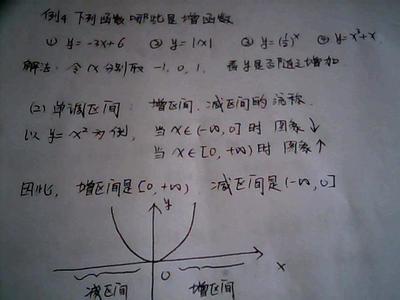 例4 下列函数哪些是增函数
① y=-3x+6 ② y=|x| ③ y=(½)ˣ ④ y=x³+x
解法: 令x分别取 -1, 0, 1, 看y是否随之增加
(2) 单调区间: 增区间、减区间的统称
以 y=x² 为例, 当x∈(-∞, 0] 时 图象↓
当x∈[0, +∞) 时 图象↑
因此, 增区间是[0, +∞) 减区间是(-∞, 0]
y
0 x
减区间 增区间